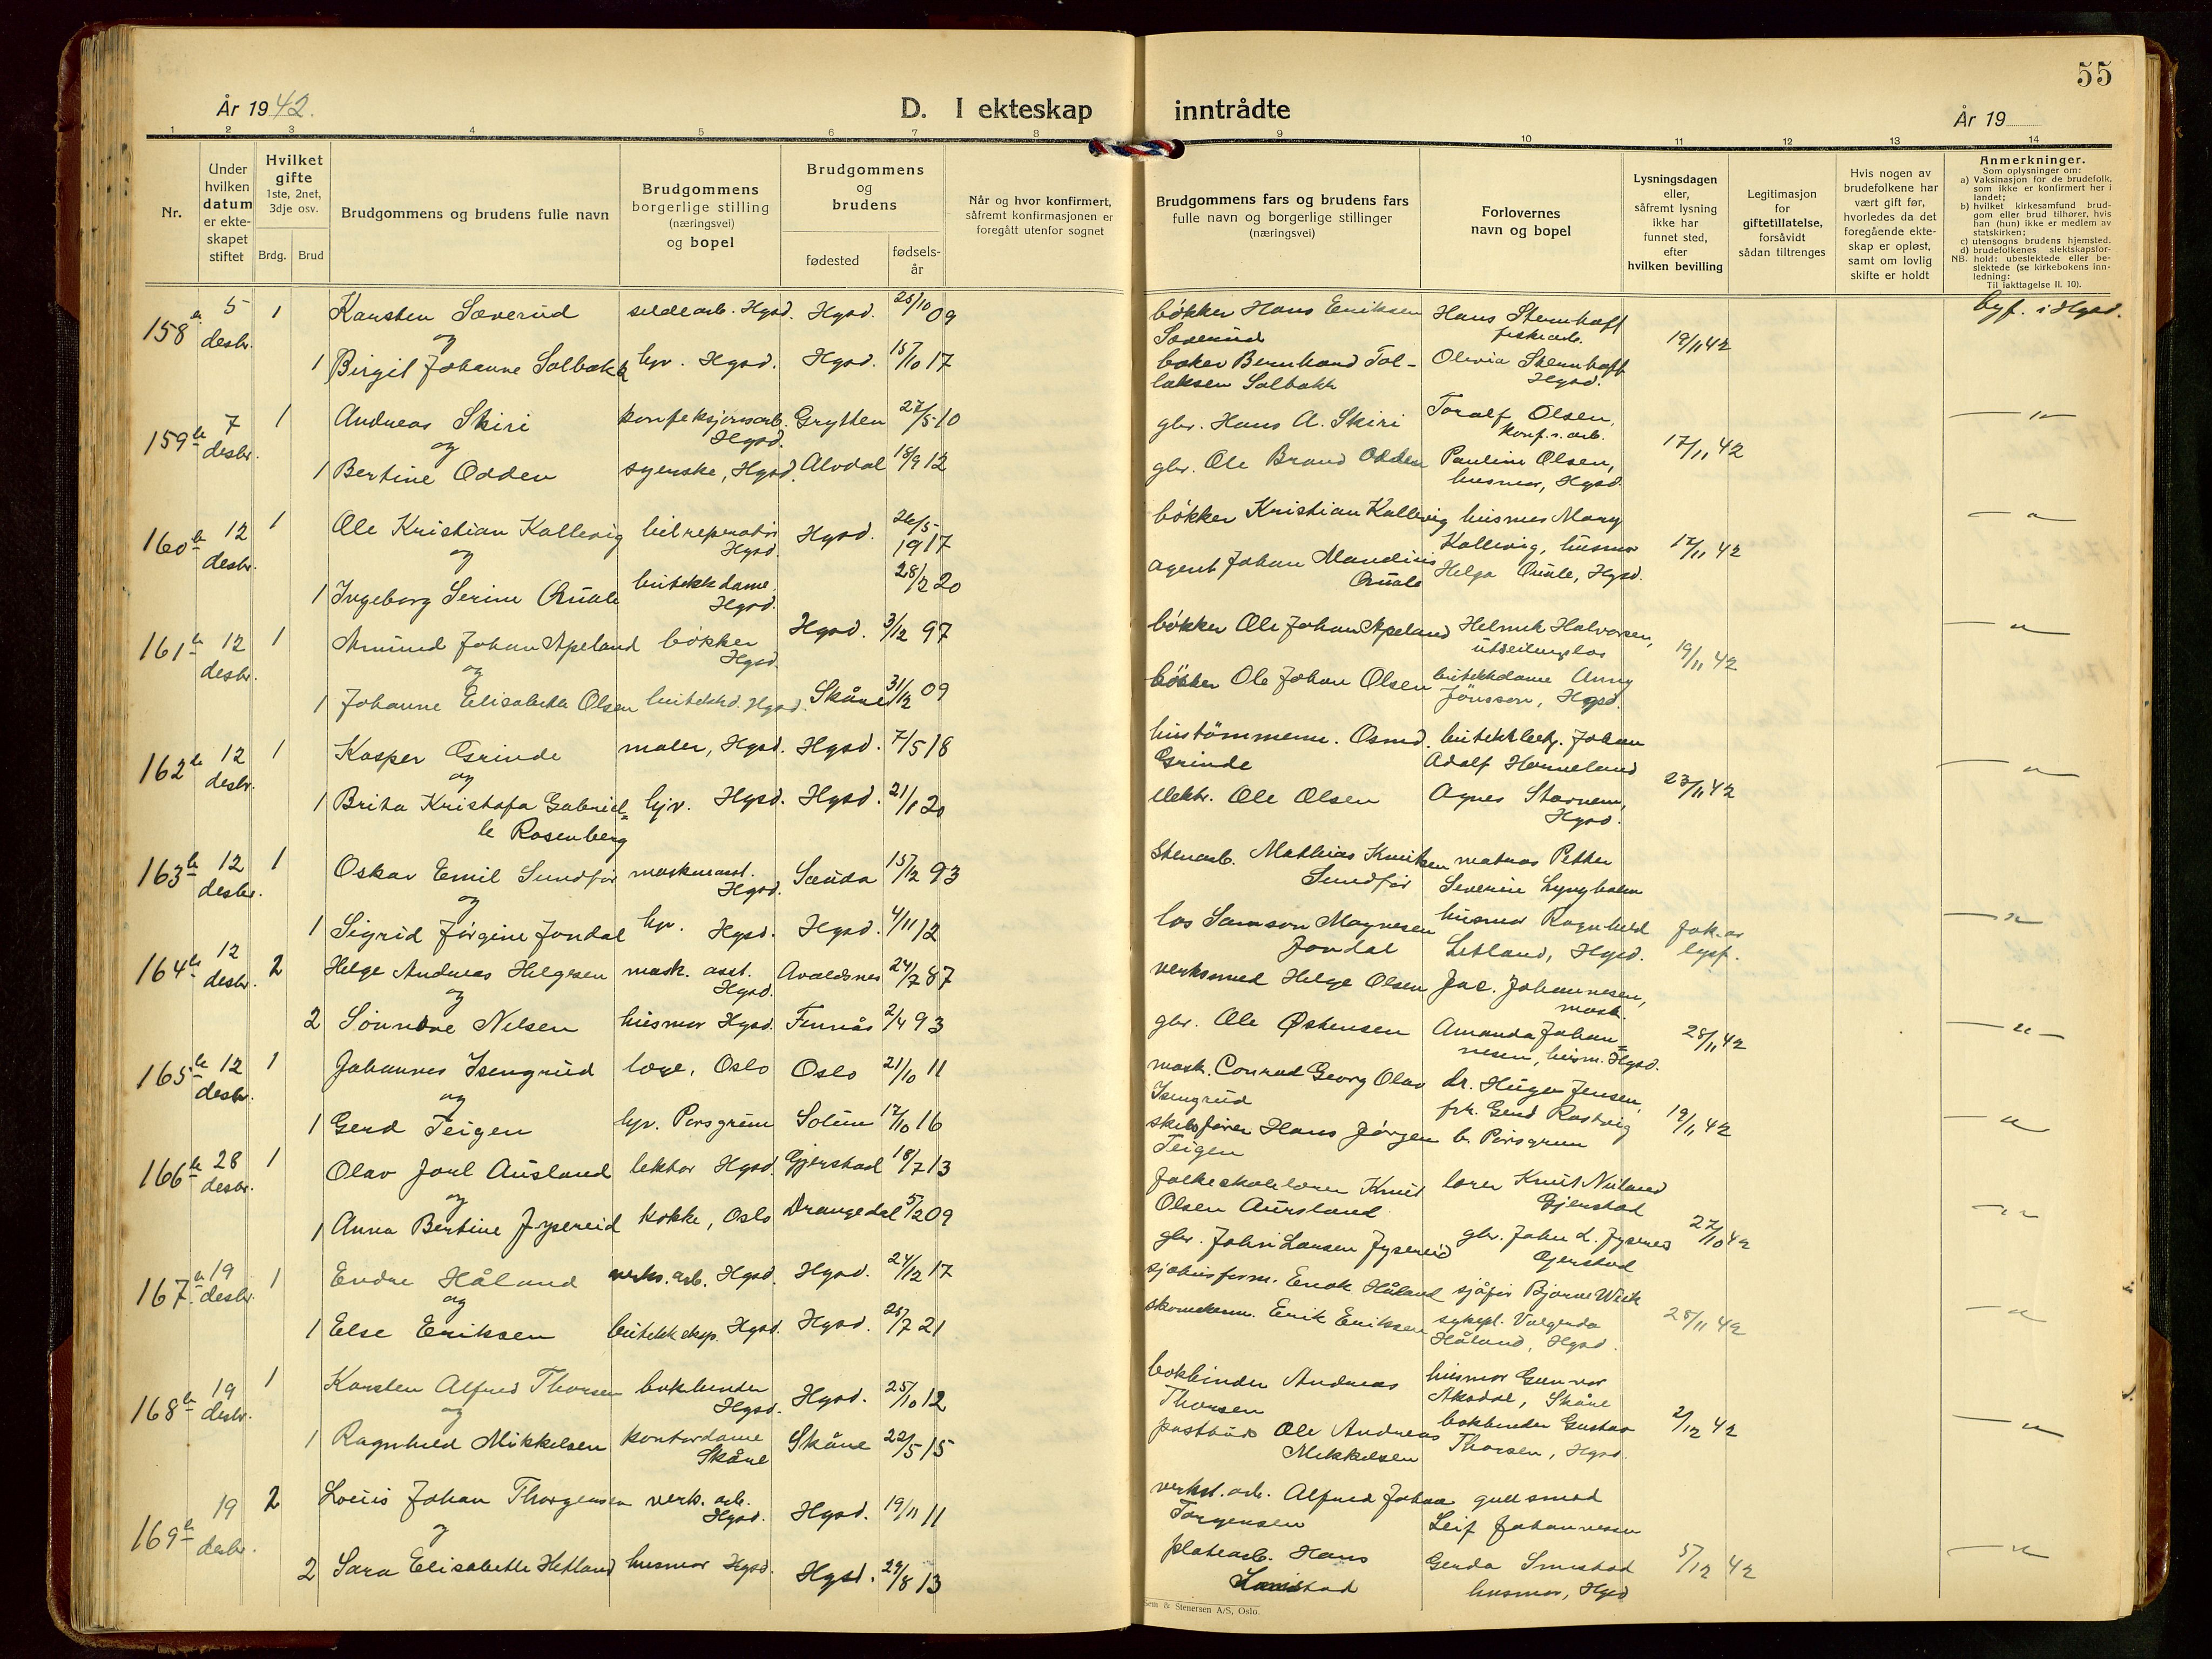 55
År 1942.
D. I ekteskap inntrådte
År 19
1 2 3 4 5 6 7 8 9 10 11 12 13 14
Nr.
Under hvilken datum er ekteskapet stiftet
Hvilket gifte 1ste, 2net, 3dje osv.
Brdg. Brud
Brudgommens og brudens fulle navn
Brudgommens borgerlige stilling (næringsvei) og bopel
Brudgommens og brudens
fødested
fødselsår
Når og hvor konfirmert, såfremt konfirmasjonen er foregått utenfor sognet
Brudgommens fars og brudens fars fulle navn og borgerlige stillinger (næringsvei)
Forlovernes navn og bopel
Lysningsdagen eller, såfremt lysning ikke har funnet sted, efter hvilken bevilling
Legitimasjon for giftetillatelse, forsåvidt sådan tiltrenges
Hvis nogen av brudefolkene har vært gift før, hvorledes da det foregående ekteskap er opløst, samt om lovlig skifte er holdt
Anmerkninger.
Som oplysninger om:
a) Vaksinasjon for de brudefolk, som ikke er konfirmert her i landet;
b) hvilket kirkesamfund brudgom eller brud tilhører, hvis han (hun) ikke er medlem av statskirken;
c) utensogns brudens hjemsted.
d) brudefolkenes slektskapsforhold: ubeslektede eller beslektede (se kirkebokens innledning:
NB.
Til iakttagelse II. 10).
158 5 desbr. 1 Karsten Sæverud sildearb. Hgsd. Hgsd. 25/10 09 bøkker Hans Eriksen Sæverud Hans Stemhoff fiskearb. 19/11 42 byf. i Hgsd.
og
1 Birgit Johanne Solbakk hjv. Hgsd. Hgsd. 15/10 17 baker Bernhard Tollaksen Solbakk Olevia Stemhoff Hgsd.
159 7 desbr. 1 Andreas Skiri konfeksjonsarb. Hgsd. Grytten 27/5 10 gbr. Hans A. Skiri Toralf Olsen, konf.s.arb. 17/11 42 — " —
og
1 Bertine Odden syerske, Hgsd. Alvdal 18/9 12 gbr. Ole Brand Odden Pauline Olsen, husmor, Hgsd.
160 12 desbr. 1 Ole Kristian Kallevig bilreparatør Hgsd. Hgsd. 26/5 1917 bøkker Kristian Kallevig husmor Mary Kallevig, husmor 17/11 42 — " —
og
1 Ingeborg Serine Quale butikkdame. Hgsd. 28/2 20 agent Johan Mandius Quale Helga Quale, Hgsd.
161 12 desbr. 1 Amund Johan Apeland bøkker Hgsd. Hgsd. 3/12 97 bøkker Ole Johan Apeland Helmik Halvorsen, 19/11 42 — " —
og
1 Johanne Elisabeth Olsen butikkd. Hgsd. Skåne 31/12 09 bøkker Ole Johan Olsen butikkdame Anny Jönsson, Hgsd.
162 12 desbr. 1 Kasper Grinde maler, Hgsd. Hgsd. 7/5 18 hustömmerm. Osmd. Grinde butikkbetj. Johan Adolf Henneland 23/11 42 — " —
og
1 Brita Kristofa Gabrielle Rosenberg hjv. Hgsd. Hgsd. 21/1 20 elektr. Ole Olsen Agnes Stornem, Hgsd.
163 12 desbr. 1 Oskar Emil Sundfør maskinasst. Hgsd. Sauda 15/12 93 Stenarb. Mathias Knutsen Sundfør matros Petter Severin Lyngholm — " —
og
1 Sigrid Jørgine Jondal hjv. Hgsd. Hgsd. 4/11 12 los Samson Magnesen Jondal husmor Ragnhild Litland, Hgsd.
164 12 desbr. 2 Helge Andreas Helgesen mask. asst. Hgsd. Avaldsnes 24/7 87 verksmed Helge Olsen Jac. Johannesen, mask. 28/11 42 — " —
og
2 Sønnøve Nilsen husmor Hgsd. Finnås 2/4 93 gbr. Ole Østensen Amanda Johannesen, husm. Hgsd.
165 12 desbr. 1 Johannes Isengrud læge, Oslo Oslo 21/10 11 mask. Conrad Georg Olav Isengrud dr. Hugo Jensen, 19/11 42 — " —
og
1 Gerd Teigen hjv. Porsgrunn Solum 17/10 16 skibsfører Hans Jørgen Teigen frk. Gerd Rostvig b. Porsgrunn
166 28 desbr. 1 Olav Joul Ausland lektor Hgsd. Gjerstad 18/7 13 folkeskolelærer Knud Olsen Aursland lærer Knut Nuland Gjerstad 27/10 42 — " —
og
1 Anna Bertine Jysereid kokke, Oslo Drangedal 5/2 09 gbr. John Larsen Jysereid gbr. John L. Jysereid Gjerstad
167 19 desbr. 1 Endre Håland verks.arb. Hgsd. Hgsd. 24/12 17 sjøhusform. Enok Håland sjåfør Bjarne Wiik 28/11 42 — " —
og
1 Else Eriksen butikkeksp. Hgsd. Hgsd. 28/7 21 skomakerm. Erik Eriksen sykepl. Valgerda Håland, Hgsd.
168 19 desbr. 1 Karsten Alfred Thorsen bokbinder Hgsd. Hgsd. 25/10 12 bokbinder Andreas Thorsen husmor Gunvor Aksdal, Skåne 2/12 42 — " —
og
1 Ragnhild Mikkelsen kontordame Skåne Skåne 22/5 15 postbud Ole Andreas Mikkelsen bokbinder Gustav Thorsen, Hgsd.
169 19 desbr. 2 Louis Johan Thorgensen verk. arb. Hgsd. Hgsd. 19/11 11 verkst.arb. Alfred Johan Torgensen gullsmed Leif Johannessen 5/12 42 — " —
og
2 Sara Elisabeth Hetland husmor Hgsd. Hgsd. 29/8 13 platearb. Hans Gerda Smistad husmor, Hgsd
Sem & Stenersen A/S, Oslo.